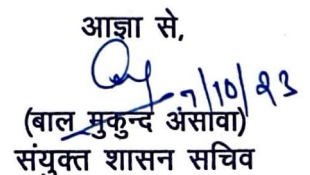 आज्ञा से,
7/10/23
(बाल मुकुन्द असावा)
संयुक्त शासन सचिव